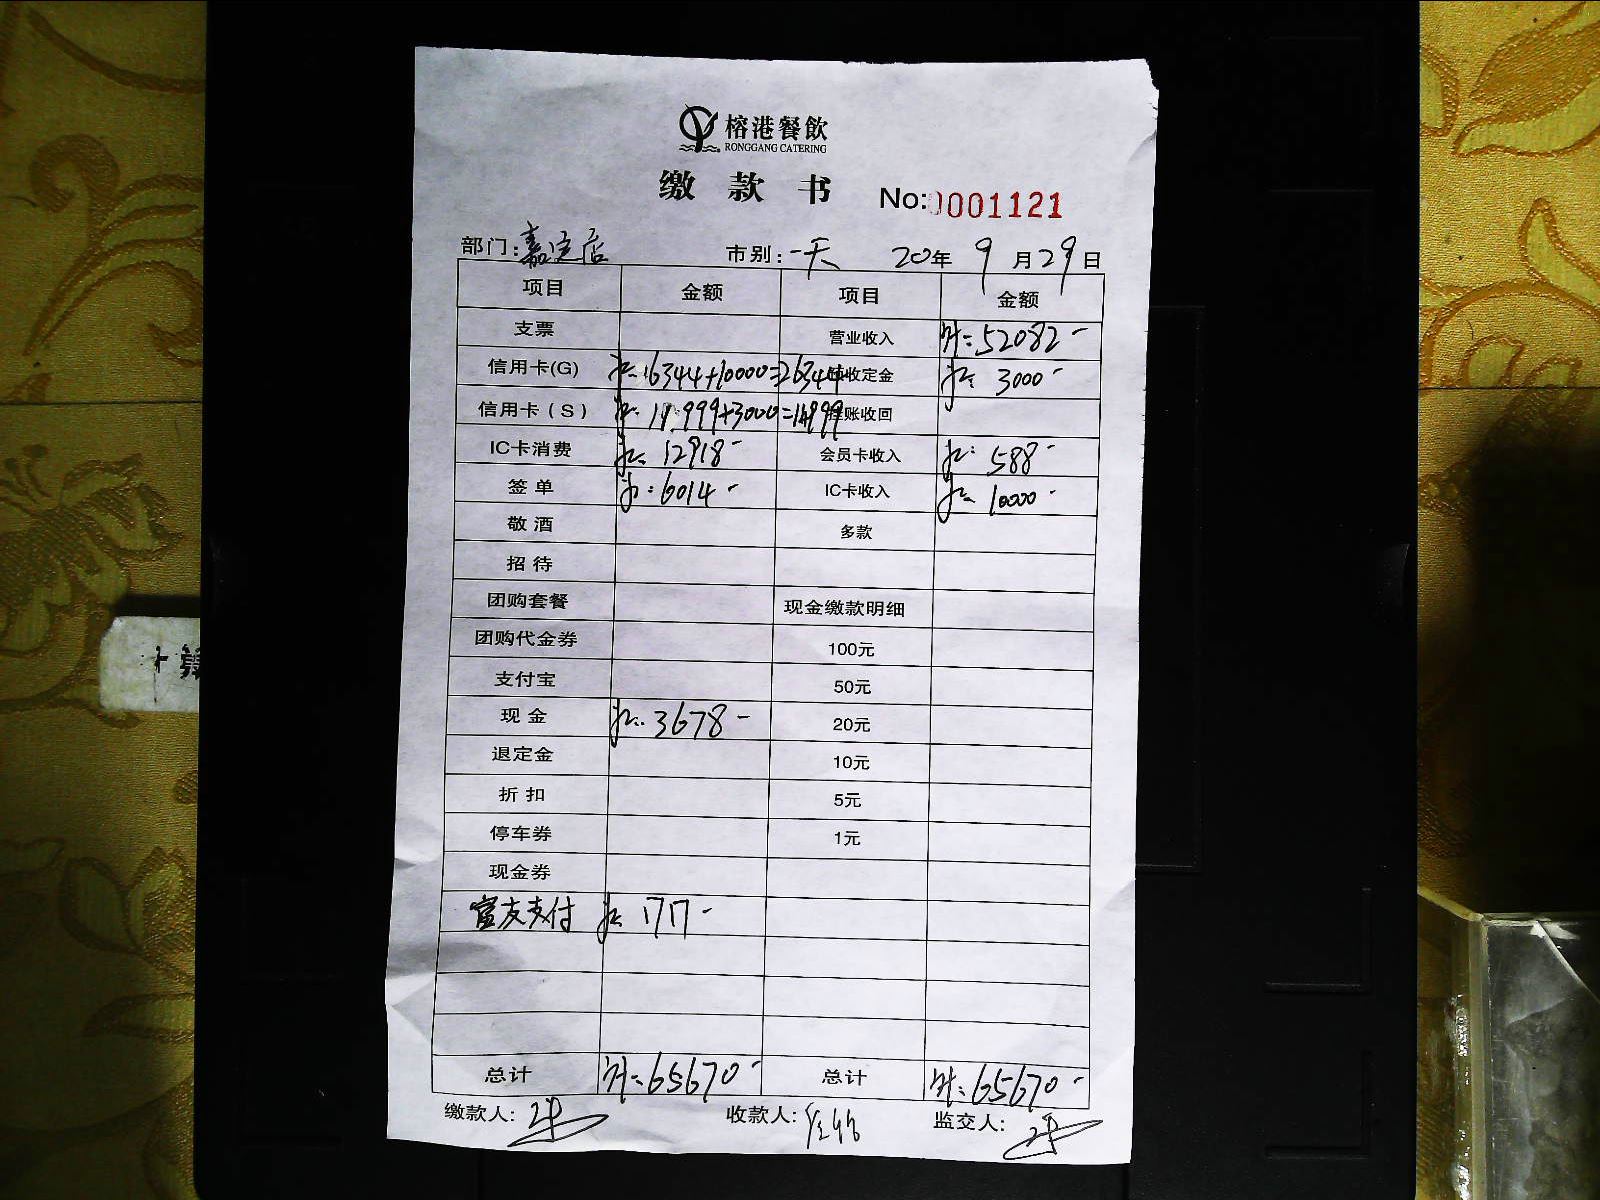 榕港餐飲
RONGGANG CATERING
缴款书 No:0001121
部门:嘉定店 市别:一天 20年9月29日
项目 金额 项目 金额
支票 营业收入 52082-
信用卡(G) 16344+10000=26344 收定金
3000-
信用卡(S) 11.999+3000=14999 账收回
IC卡消费 12918- 会员卡收入 588-
签单 6014- IC卡收入 10000-
敬酒 多款
招待
团购套餐 现金缴款明细
团购代金券 100元
支付宝 50元
现金 3678- 20元
退定金 10元
折扣 5元
停车券 1元
现金券
支付 1717-
总计 65670- 总计 65670-
缴款人: 收款人: 监交人: